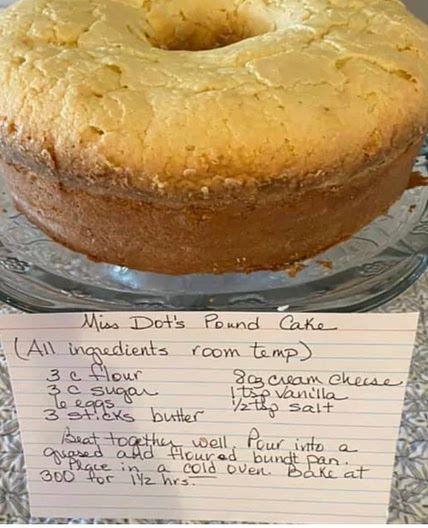 Miss Dot's Pound Cake
(All ingredients room temp)
3 c flour 8oz cream cheese
3 c sugar 1 tsp vanilla
6 eggs 1/2 tsp salt
3 sticks butter
Beat together well. Pour into a
greased and floured bundt pan.
Place in a cold oven. Bake at
300 for 1 1/2 hrs.